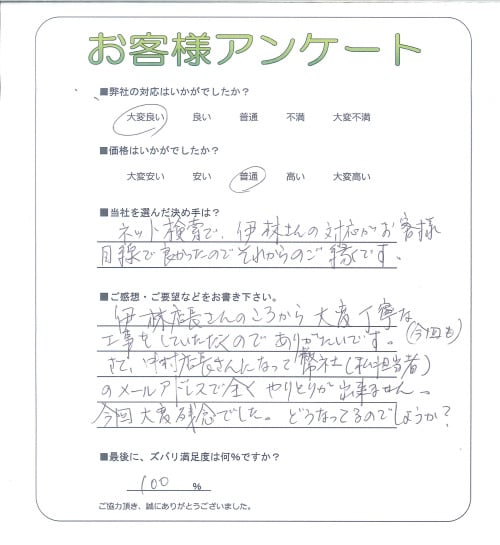 お客様アンケート
■弊社の対応はいかがでしたか？
大変良い 良い 普通 不満 大変不満
■価格はいかがでしたか？
大変安い 安い 普通 高い 大変高い
■当社を選んだ決め手は？
ネット検索で、伊林さんの対応がお客様
目線で良かったのでそれからのご縁です。
■ご感想・ご要望などをお書き下さい。
伊林店長さんのころから大変丁寧な
工事をしていただくのでありがたいです。(今回も)
さて、中村店長さんになって弊社(私担当者)
のメールアドレスで全くやりとりが出来ません。
今回大変残念でした。どうなってるのでしょうか？
■最後に、ズバリ満足度は何%ですか？
100 %
ご協力頂き、誠にありがとうございました。